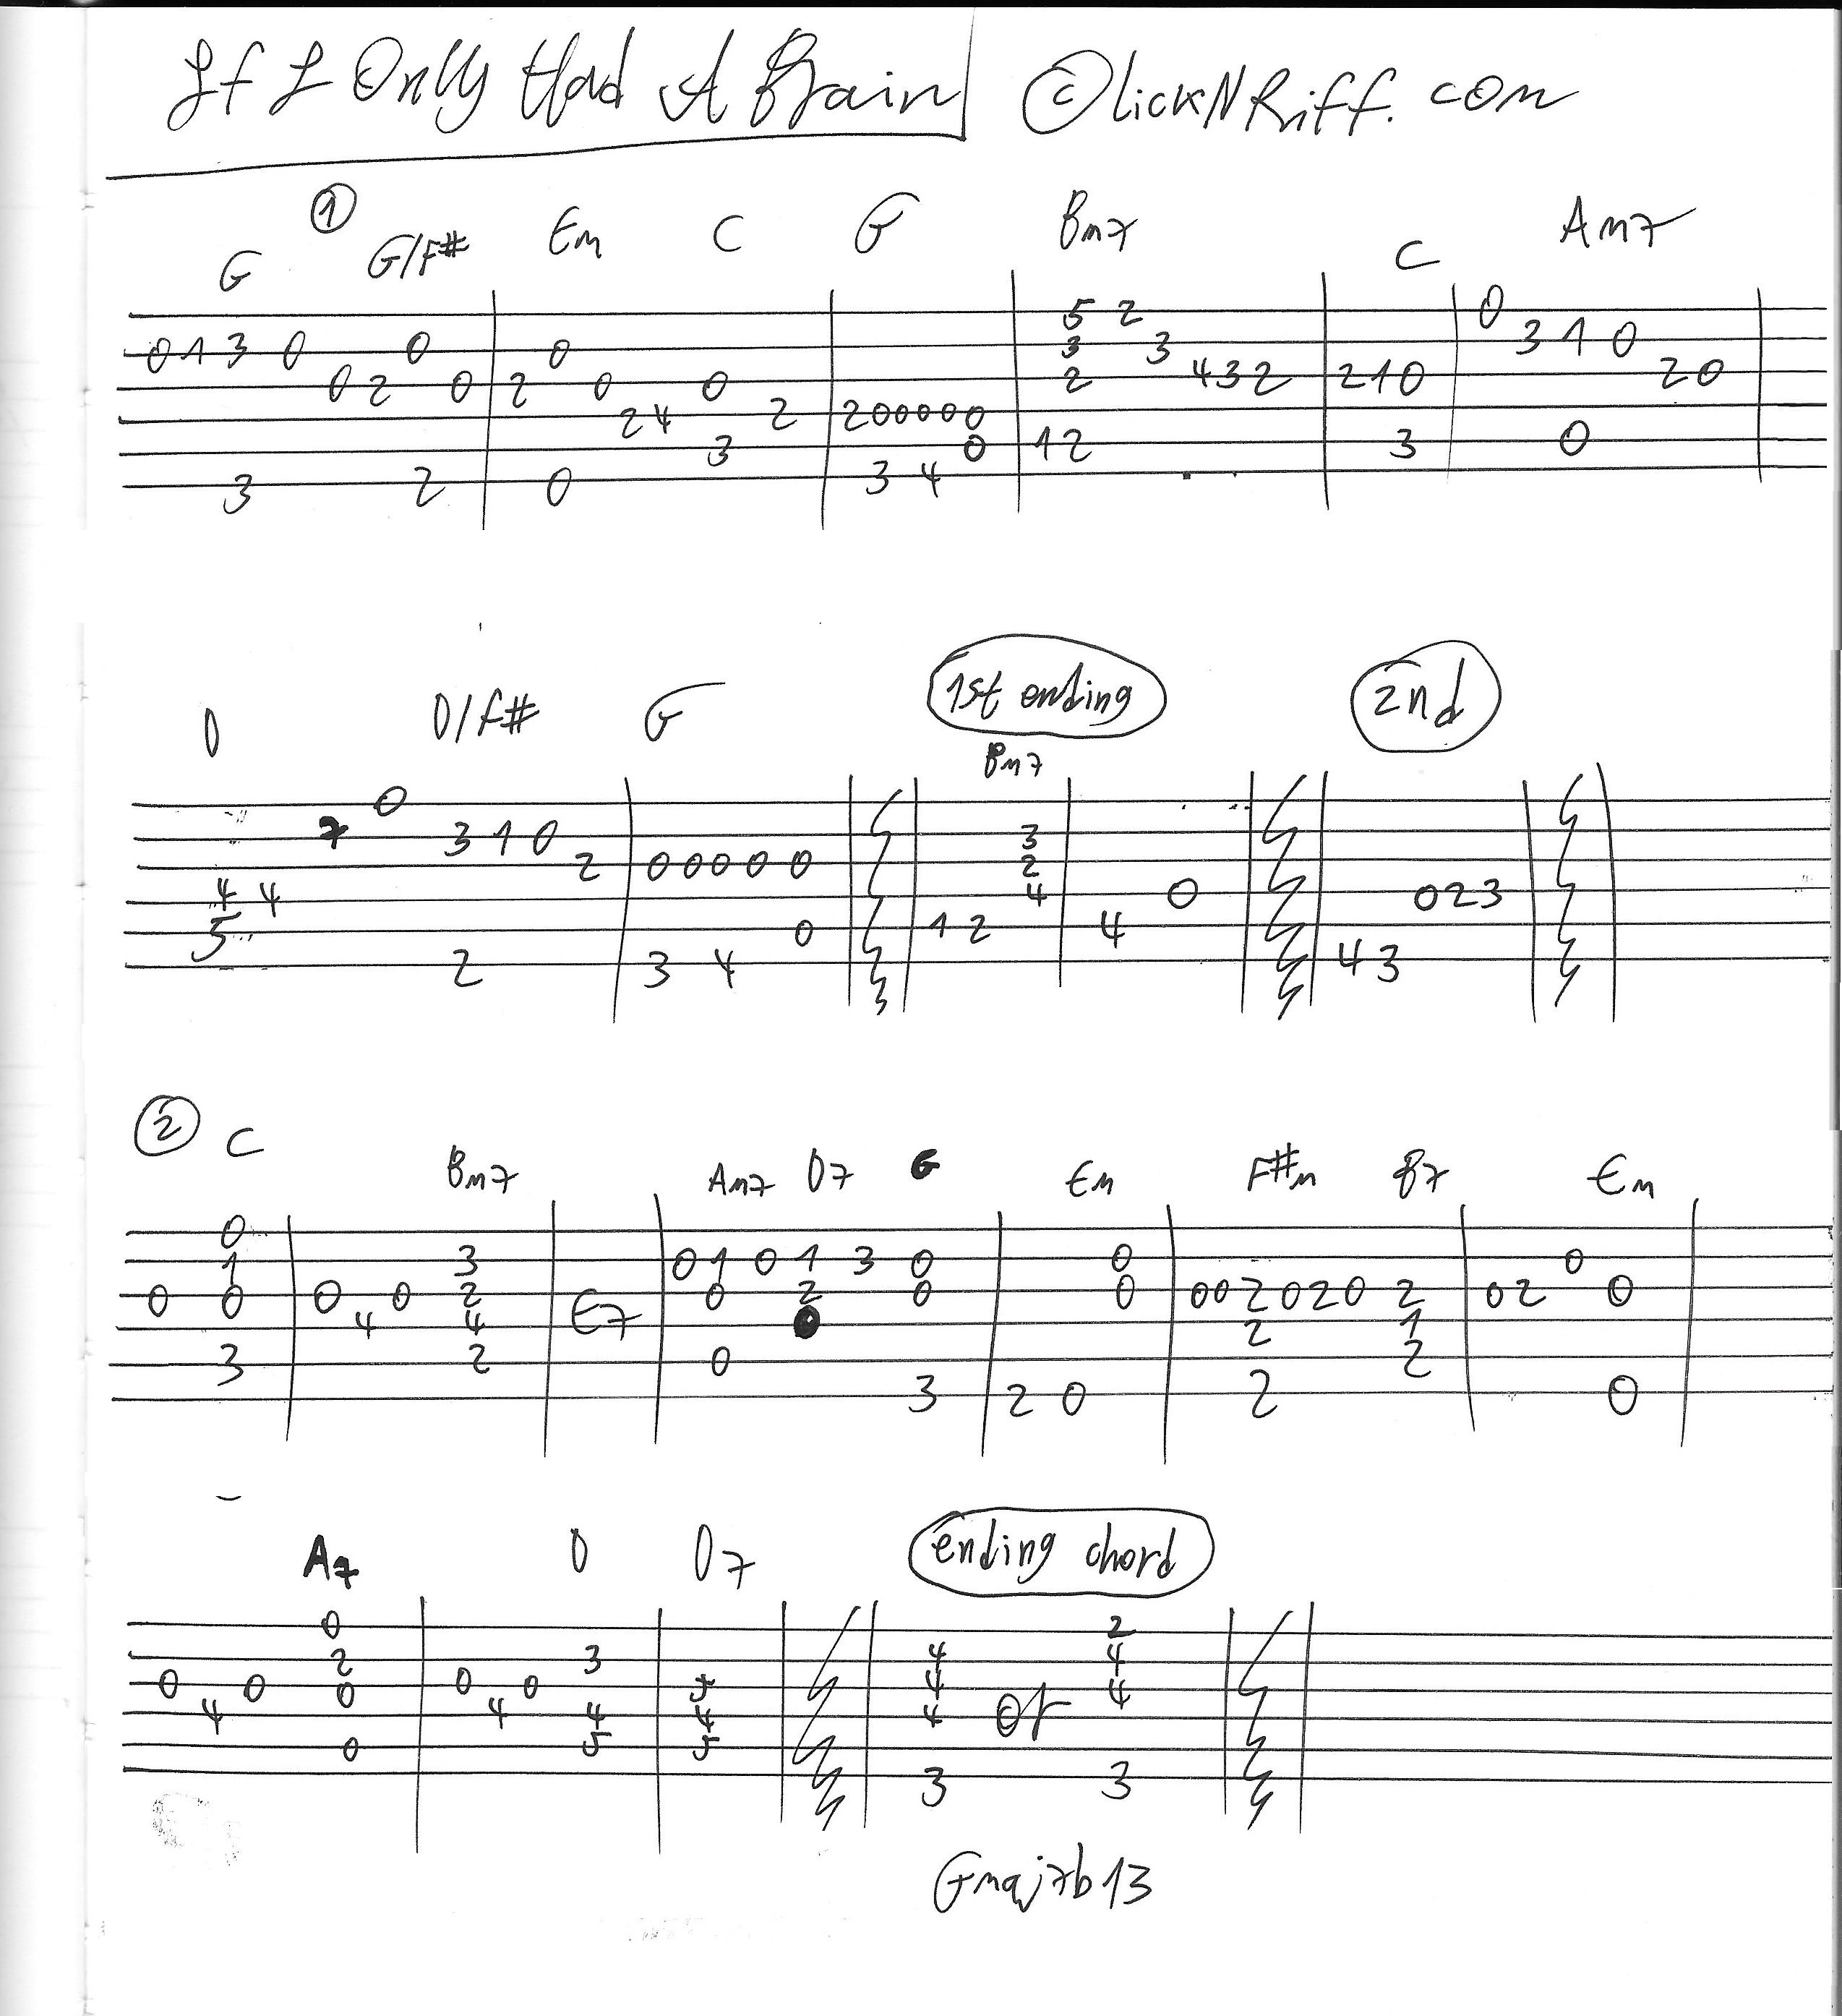 If I Only Had A Brain © LickNRiff.com
①
G G/F# Em C G Bm7 C Am7
5 2 0
0 1 3 0 0 0 3 3 3 1 0
0 2 0 2 0 0 2 4 3 2 2 1 0 2 0
2 4 2 2 0 0 0 0 0
3 0 1 2 3 0
3 2 0 3 4
1st ending 2nd
D D/F# G Bm7
0
7 3 1 0 3
2 0 0 0 0 0 2
4 4 4 0 0 2 3
5 0 1 2 4
2 3 4 4 3
② C Bm7 Am7 D7 G Em F#m B7 Em
0
1 3 0 1 0 1 3 0 0 0
0 0 0 0 2 0 2 0 0 0 0 2 0 2 0 2 0 2 0
4 4 E7 2 1
3 2 0 2
3 2 0 2 0
A7 D D7 ending chord
0 2
2 3 4 4
0 0 0 0 0 5 4 4
4 4 4 4 4 or
0 5 5
3 3
Gmaj7b13